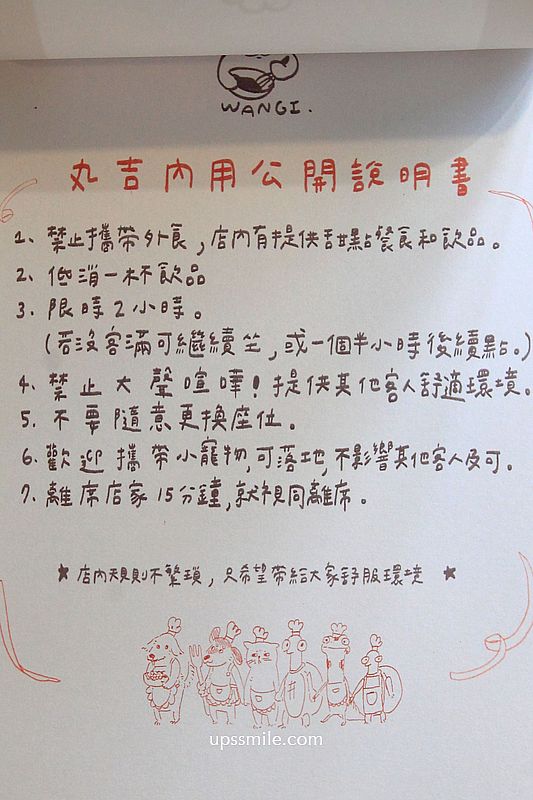 WANGI.
丸吉內用公開說明書
1、禁止攜帶外食，店內有提供甜點餐食和飲品。
2、低消一杯飲品
3、限時2小時。
(若沒客滿可繼續坐，或一個半小時後續點。)
4、禁止大聲喧嘩！提供其他客人舒適環境。
5、不要隨意更換座位。
6、歡迎攜帶小寵物，可落地，不影響其他客人及可。
7、離席店家15分鐘，就視同離席。
★店內規則不繁瑣，只希望帶給大家舒服環境 ★
upssmile.com